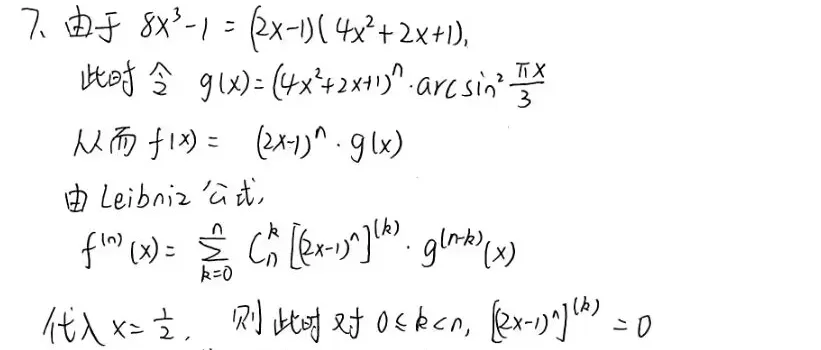 7、由于 8x³-1 = (2x-1)(4x²+2x+1),
此时令 g(x)=(4x²+2x+1)ⁿ·arcsin² πx/3
从而 f(x) = (2x-1)ⁿ·g(x)
由 Leibniz 公式,
f⁽ⁿ⁾(x) = ∑_{k=0}^{n} C_n^k [(2x-1)ⁿ]^{(k)}·g^{(n-k)}(x)
代入 x=1/2, 则此时对 0≤k<n, [(2x-1)ⁿ]^{(k)} = 0